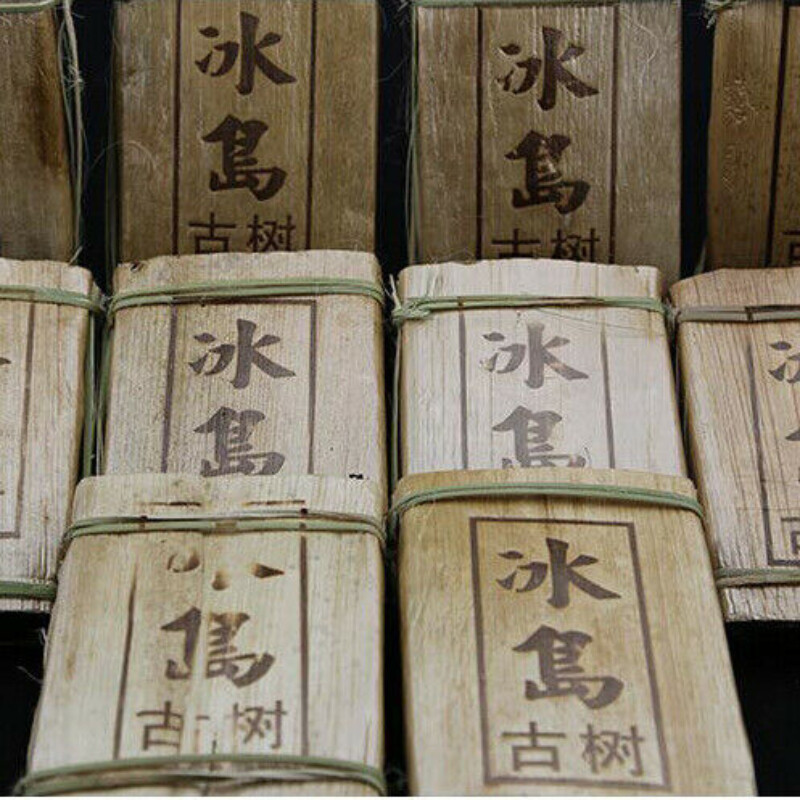 冰
島
古树
冰
島
古树
冰
島
冰
島
島
古树
冰
島
古树